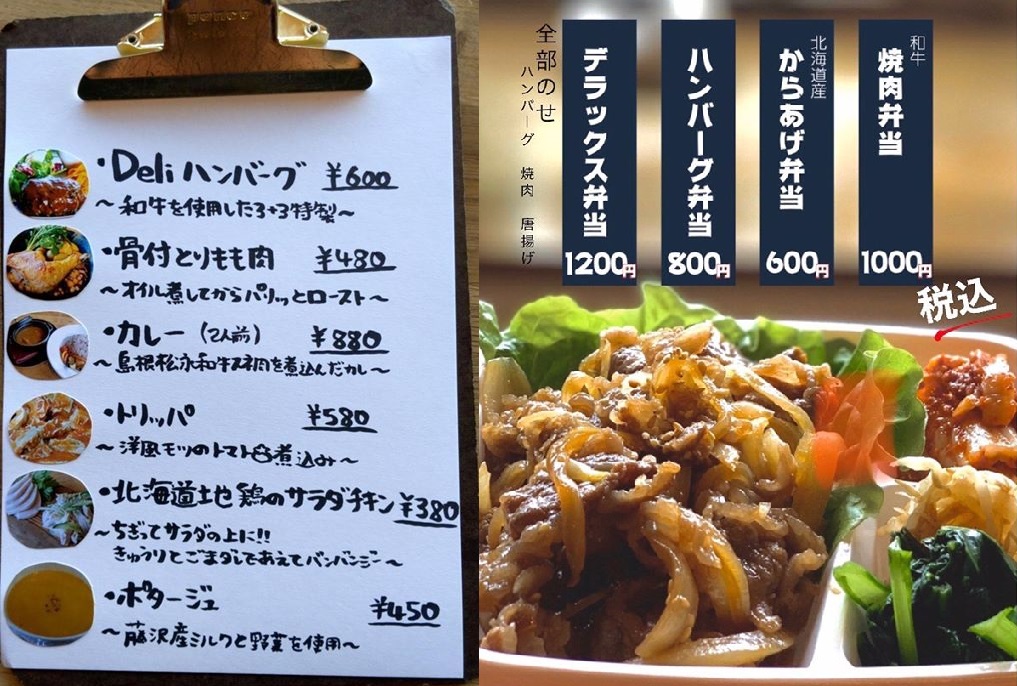 ・Deli ハンバーグ ¥600
～和牛を使用した3+3特製～
・骨付とりもも肉 ¥480
～オイル煮してからパリッとロースト～
・カレー (2人前) ¥880
～島根松永和牛スネ肉を煮込んだカレー～
・トリッパ ¥580
～洋風モツのトマト煮込み～
・北海道地鶏のサラダチキン ¥380
～ちぎってサラダの上に!!
きゅうりとごまダレであえてバンバンジー～
・ポタージュ ¥450
～藤沢産ミルクと野菜を使用～
和牛
焼肉弁当
1000円
北海道産
からあげ弁当
600円
ハンバーグ弁当
800円
デラックス弁当
1200円
全部のせ
ハンバーグ 焼肉 唐揚げ
税込